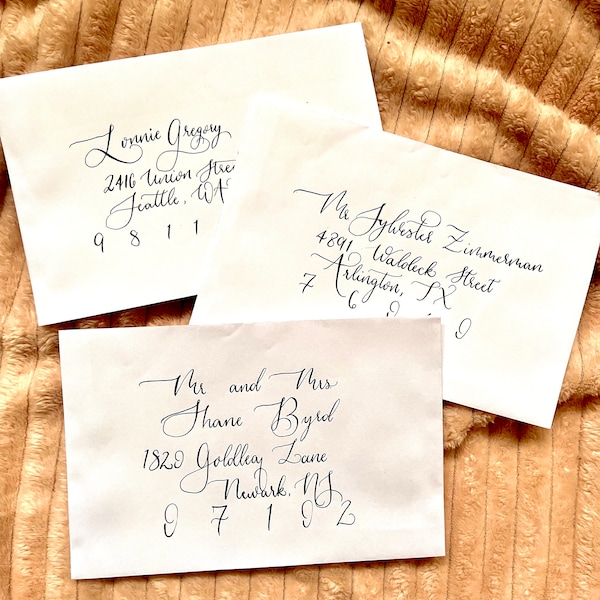 Lonnie Gregory
2416 Union Stree
Seattle, WA
9 8 1 1
Mr Sylvester Zimmerman
4891 Waldeck Street
Arlington, TX
7 6 0 1 0
Mr and Mrs
Shane Byrd
1820 Goldleaf Lane
Newark, NJ
0 7 1 0 2